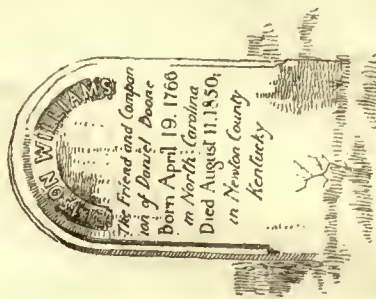 WILLIAMS
The Friend and Compan
ion of Daniel Boone
Born April 19. 1766
in North Carolina
Died August 11.1850,
in Newton County
Kentucky